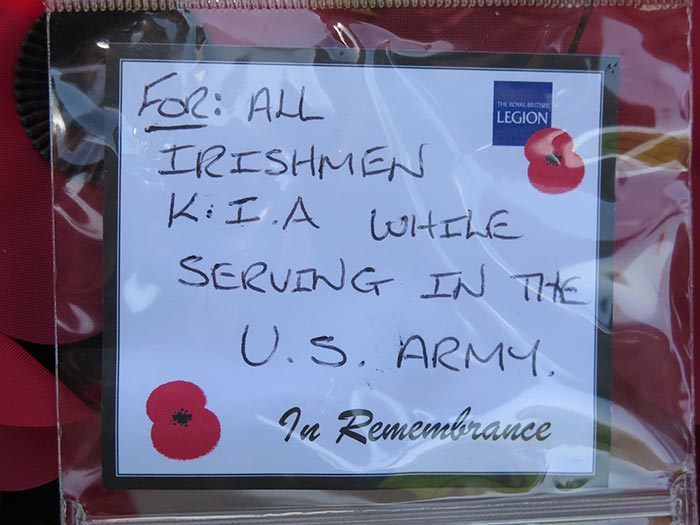 FOR: ALL
IRISHMEN
K:I.A WHILE
SERVING IN THE
U.S. ARMY.
THE ROYAL BRITISH
LEGION
In Remembrance